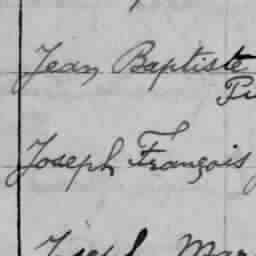 Jean Baptiste
Joseph François